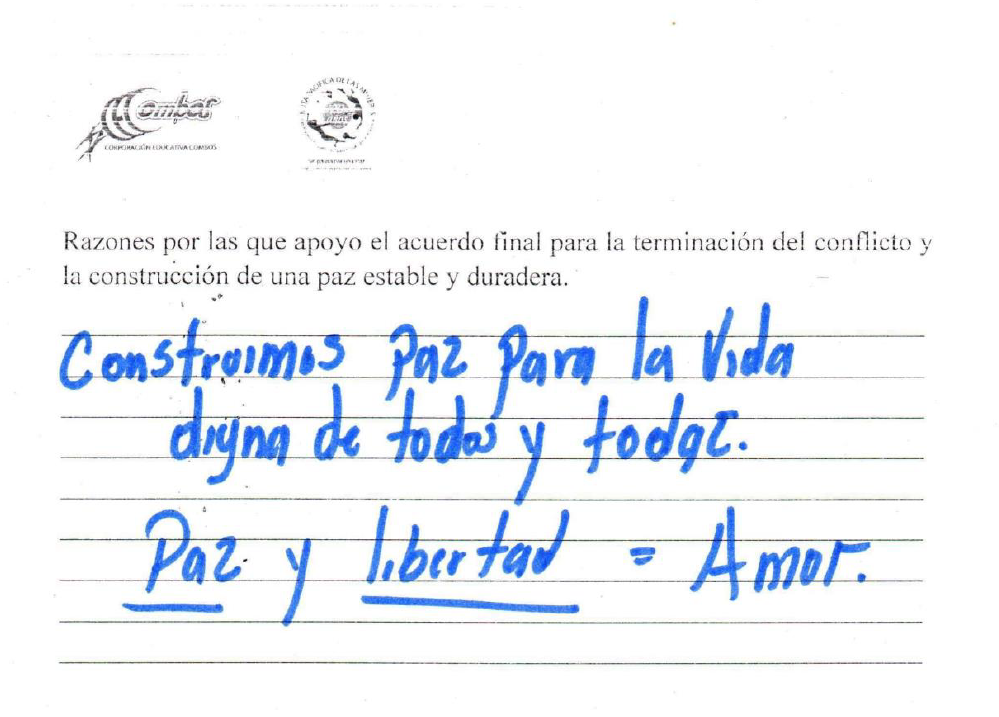 Combos
CORPORACIÓN EDUCATIVA COMBOS
Razones por las que apoyo el acuerdo final para la terminación del conflicto y
la construcción de una paz estable y duradera.
Construimos Paz Para la Vida
digna de todos y todas.
Paz y libertad = Amor.